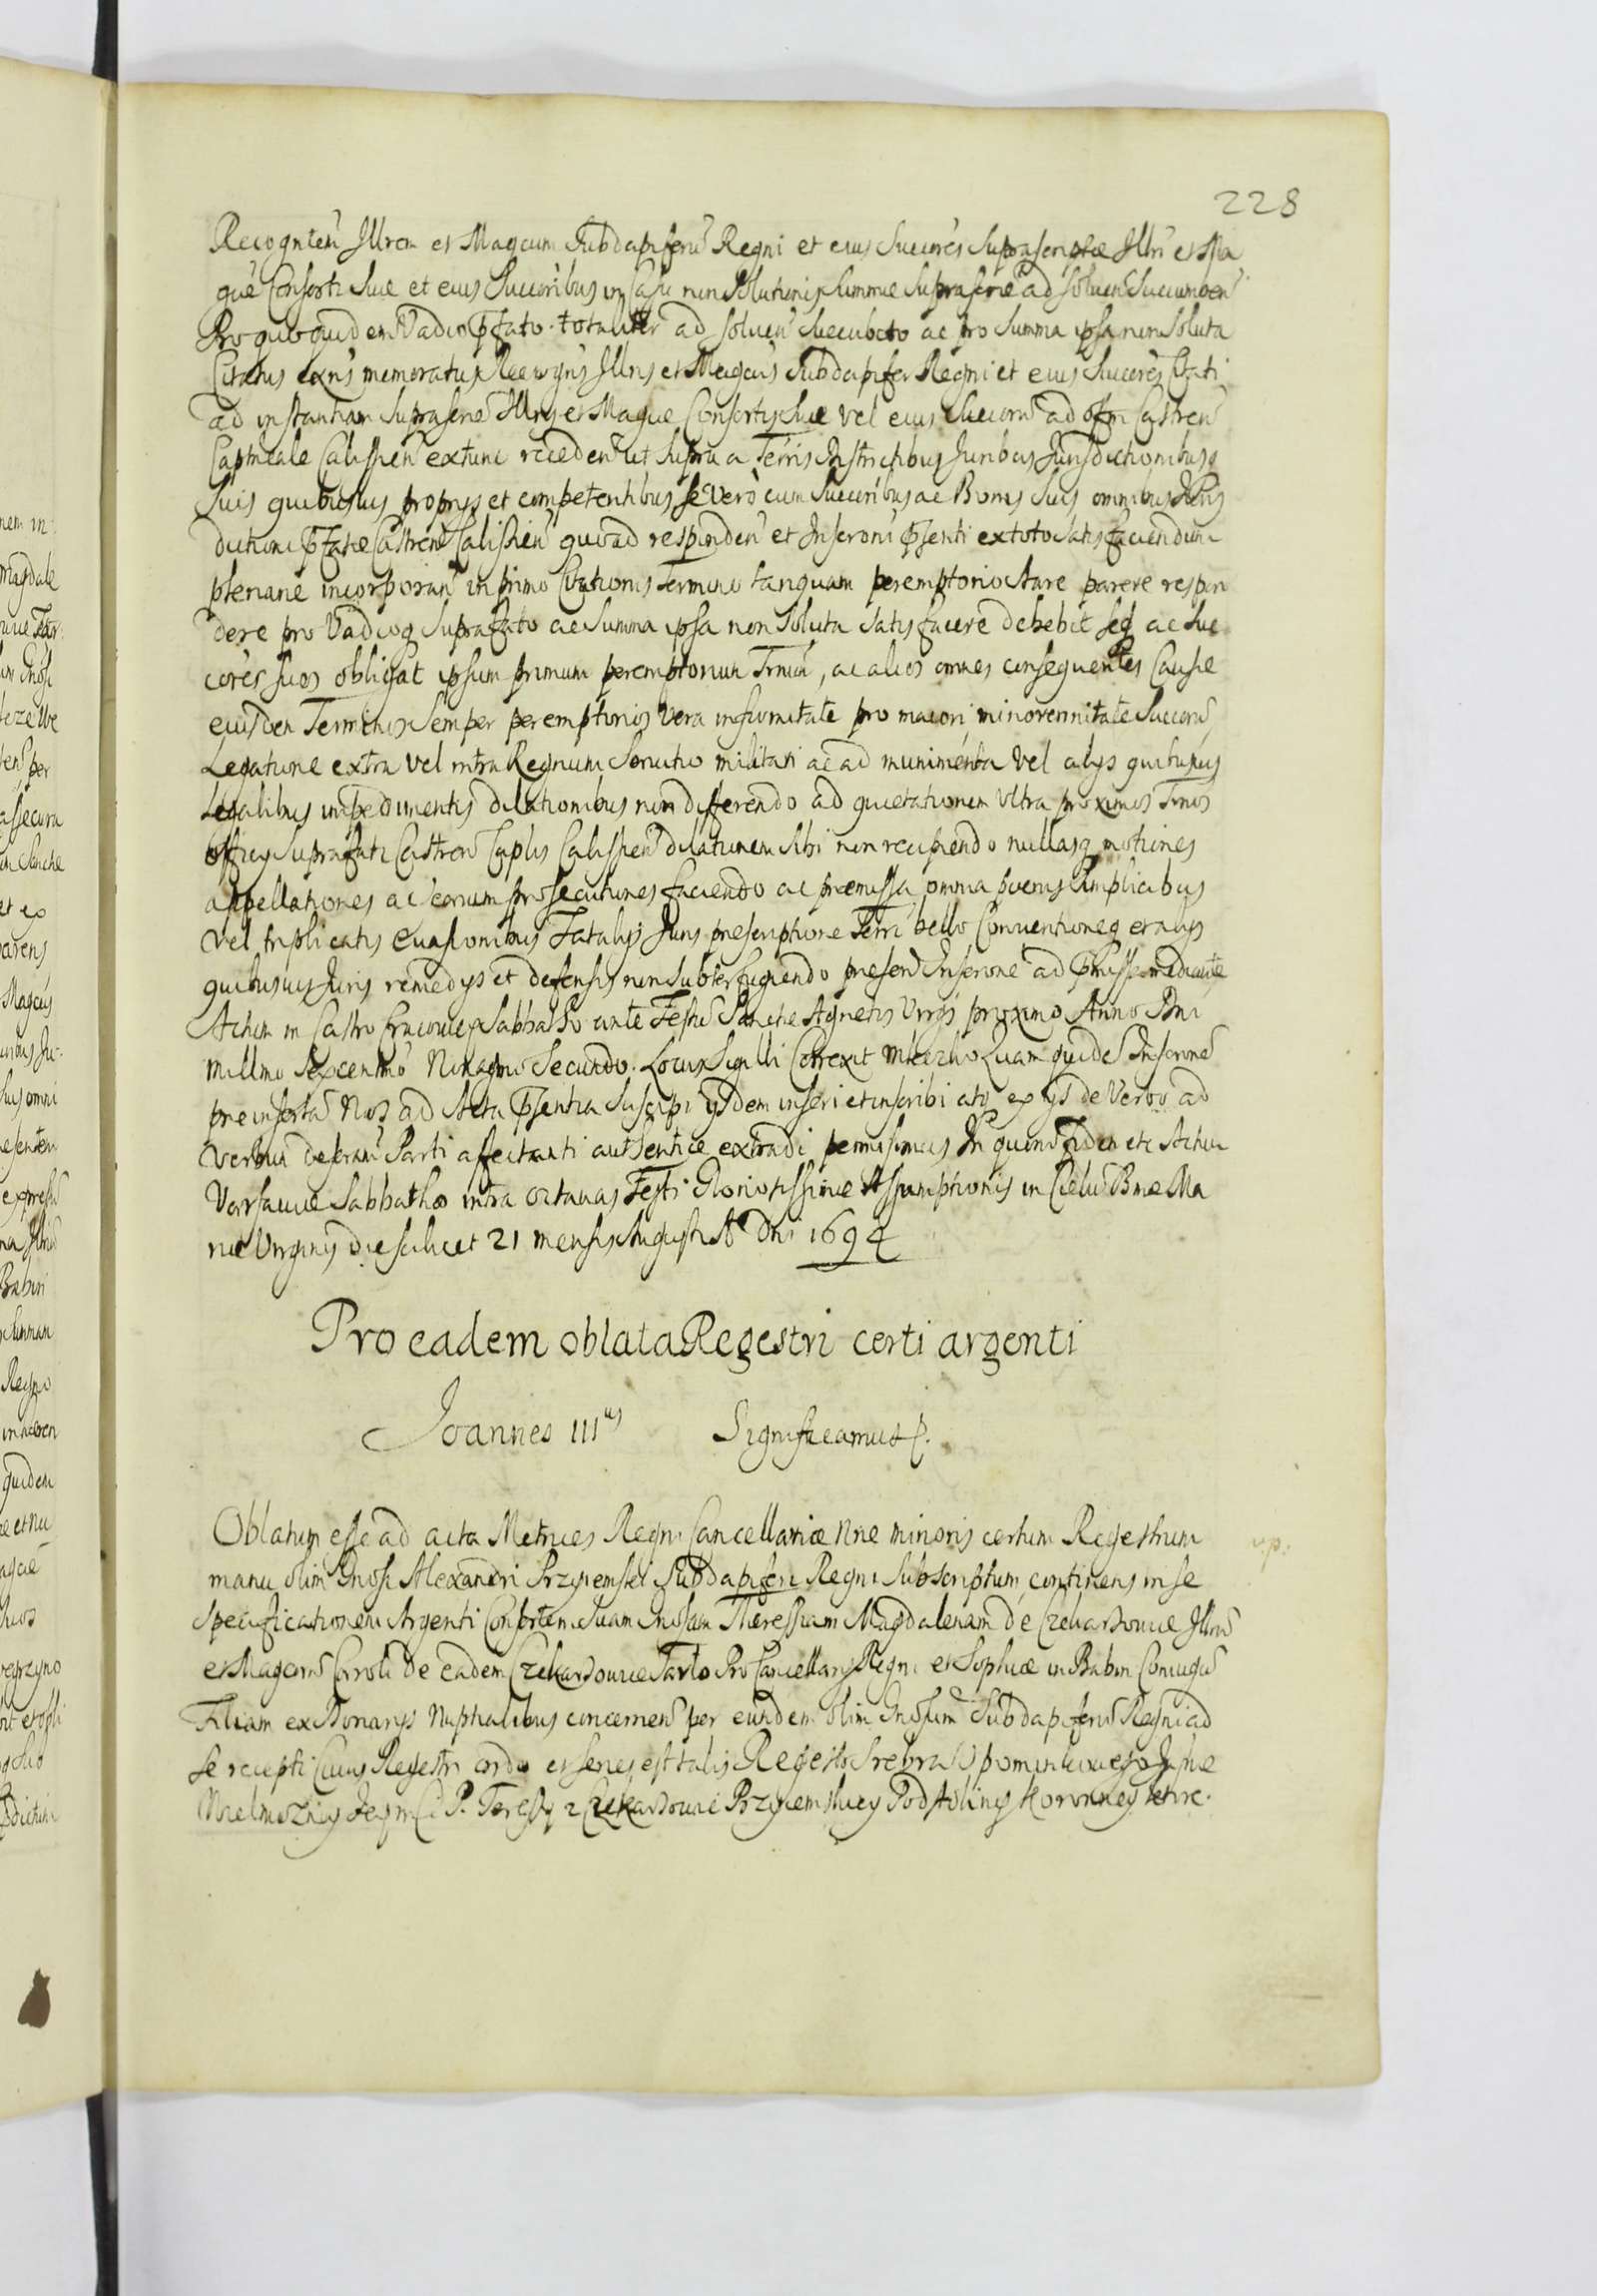 228
Recognten Illrem et Magcum Subdapiferu Regni et eius Succores Suprascriptae Illri et Ma
gce Consorti Suae et eius Succoribus in Casu non Solutionis Summae Suprascrae ad Solven Succumben
Pro quo quidem Vadio pfato totaliter ad solven succubito ac pro Summa ipsa non Soluta
Citatus exns memoratus Recogns Illris et Magcus Subdapifer Regni et eius Succores Citati
ad instantiam Suprascrae Illris et Magcae Consortis Suae vel eius Succorum ad offm Castren
Captneale Calissien extunc receden ut supra a Terris Districtibus Juribus Jurisdictionibusq
Suis quibusvis proprys et competentibus Se vero cum Succoribus ac Bonis Suis omnibus Juris
dictioni pfatae Castren Calissien quoad responden et Inscroni psenti ex toto Satisfaciendum
plenarie incorporan in primo Citationis Termino tanquam peremptorio Stare parere respon
dere pro Vadioq Suprafato ac Summa ipsa non Soluta Satisfacere debebit Seq ac Suc
cores suos obligat ipsum primum peremptorium Trnum, ac alios omnes consequentes Causae
eiusdem Terminos Semper peremptorios Vera infirmitate pro maiori, minorennitate Succorum,
Legatione extra vel intra Regnum Servitio militari ac ad munimenta vel alys quibusvis
Legalibus impedimentis dilationibus non differendo ad quietationem Ultra proximos Trnos
Officy Suprafati Castren Captlis Calissien dilationem Sibi non recipiendo nullasq motiones
appellationes ac earum prosecutiones faciendo ac praemissa omnia poenis Simplicibus
vel triplicatis Evasionibus Fatalys Juris prescriptione Terri bello Conventioneq et alys
quibusvis Juris remedys et defensis non Subterfugiendo presen Inscrone ad pmissa mediante
Actum in Castro Cracovien Sabbatho ante Festu Sanctae Agnetis Virgis proximo Anno Dni
Millmo Sexcentmo Nonagmo Secundo. Locus Sigilli Correxit Quam quidem Inscrone
preinserta Nos ad Acta psentia Suscipi ysdem inseri et inscribi atq ex ys de Verbo ad
Verbum descrani Parti affectanti authenticae extradi permisimus In quoru fidem etc Actum
Varsaviae Sabbatho intra octavas Festi Gloriosissimae Assumptionis in Caelu Bmae Ma
riae Virginis die scilicet 21 mensis Augusti Ao Dni 1694
Pro eadem oblata Regestri certi argenti
Joannes IIIus Significamus p.
Oblatum esse ad acta Metrices Regni Cancellariae Nrae minoris certum Regestrum v.p:
manu olim Gnosi Alexandri Przyiemski Subdapiferi Regni Subscriptum continens in se
Specificationem Argenti Consortem Suam Gnosam Theressiam Magdalenam de Czekarzovice Illris
et Magcorum Caroli de Eadem Czekarzovice Tarlo Pro Cancellary Regni et Sophiae in Babin Coniugu
Filiam ex Donarys Nuptialibus concernens per eundem olim Gnosum Subdapiferu Regni ad
Se recepti Cuius Regestri ordo et series est talis Regestr Srebra Upominkowego Jasnie
Wielmozney Jeymci P. Teressy z Czekarzowic Przyiemskiey Podstoliney Koronney